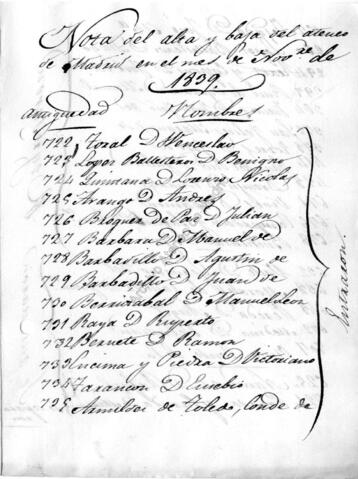 Nota del alta y baja del ateneo
de Madrid en el mes de Novre. de
1839.
antiguedad Nombres
722 Toral D Wenceslao
723 Lopez Ballesteros D Benigno
724 Quintana D Lorenzo Nicolas
725 Arango D Andres
726 Broguer de Paz D Julian
727 Barbara D Manuel de
728 Barbadillo D Agustin de
729 Barbadillo D Juan de
730 Berrizabal D Manuel Leon
731 Raya D Ruperto
732 Bernete D Ramon
733 Encima y Piedra D Victoriano
734 Tarancon D Eusebio
735 de Toledo, Conde de
Entraron.